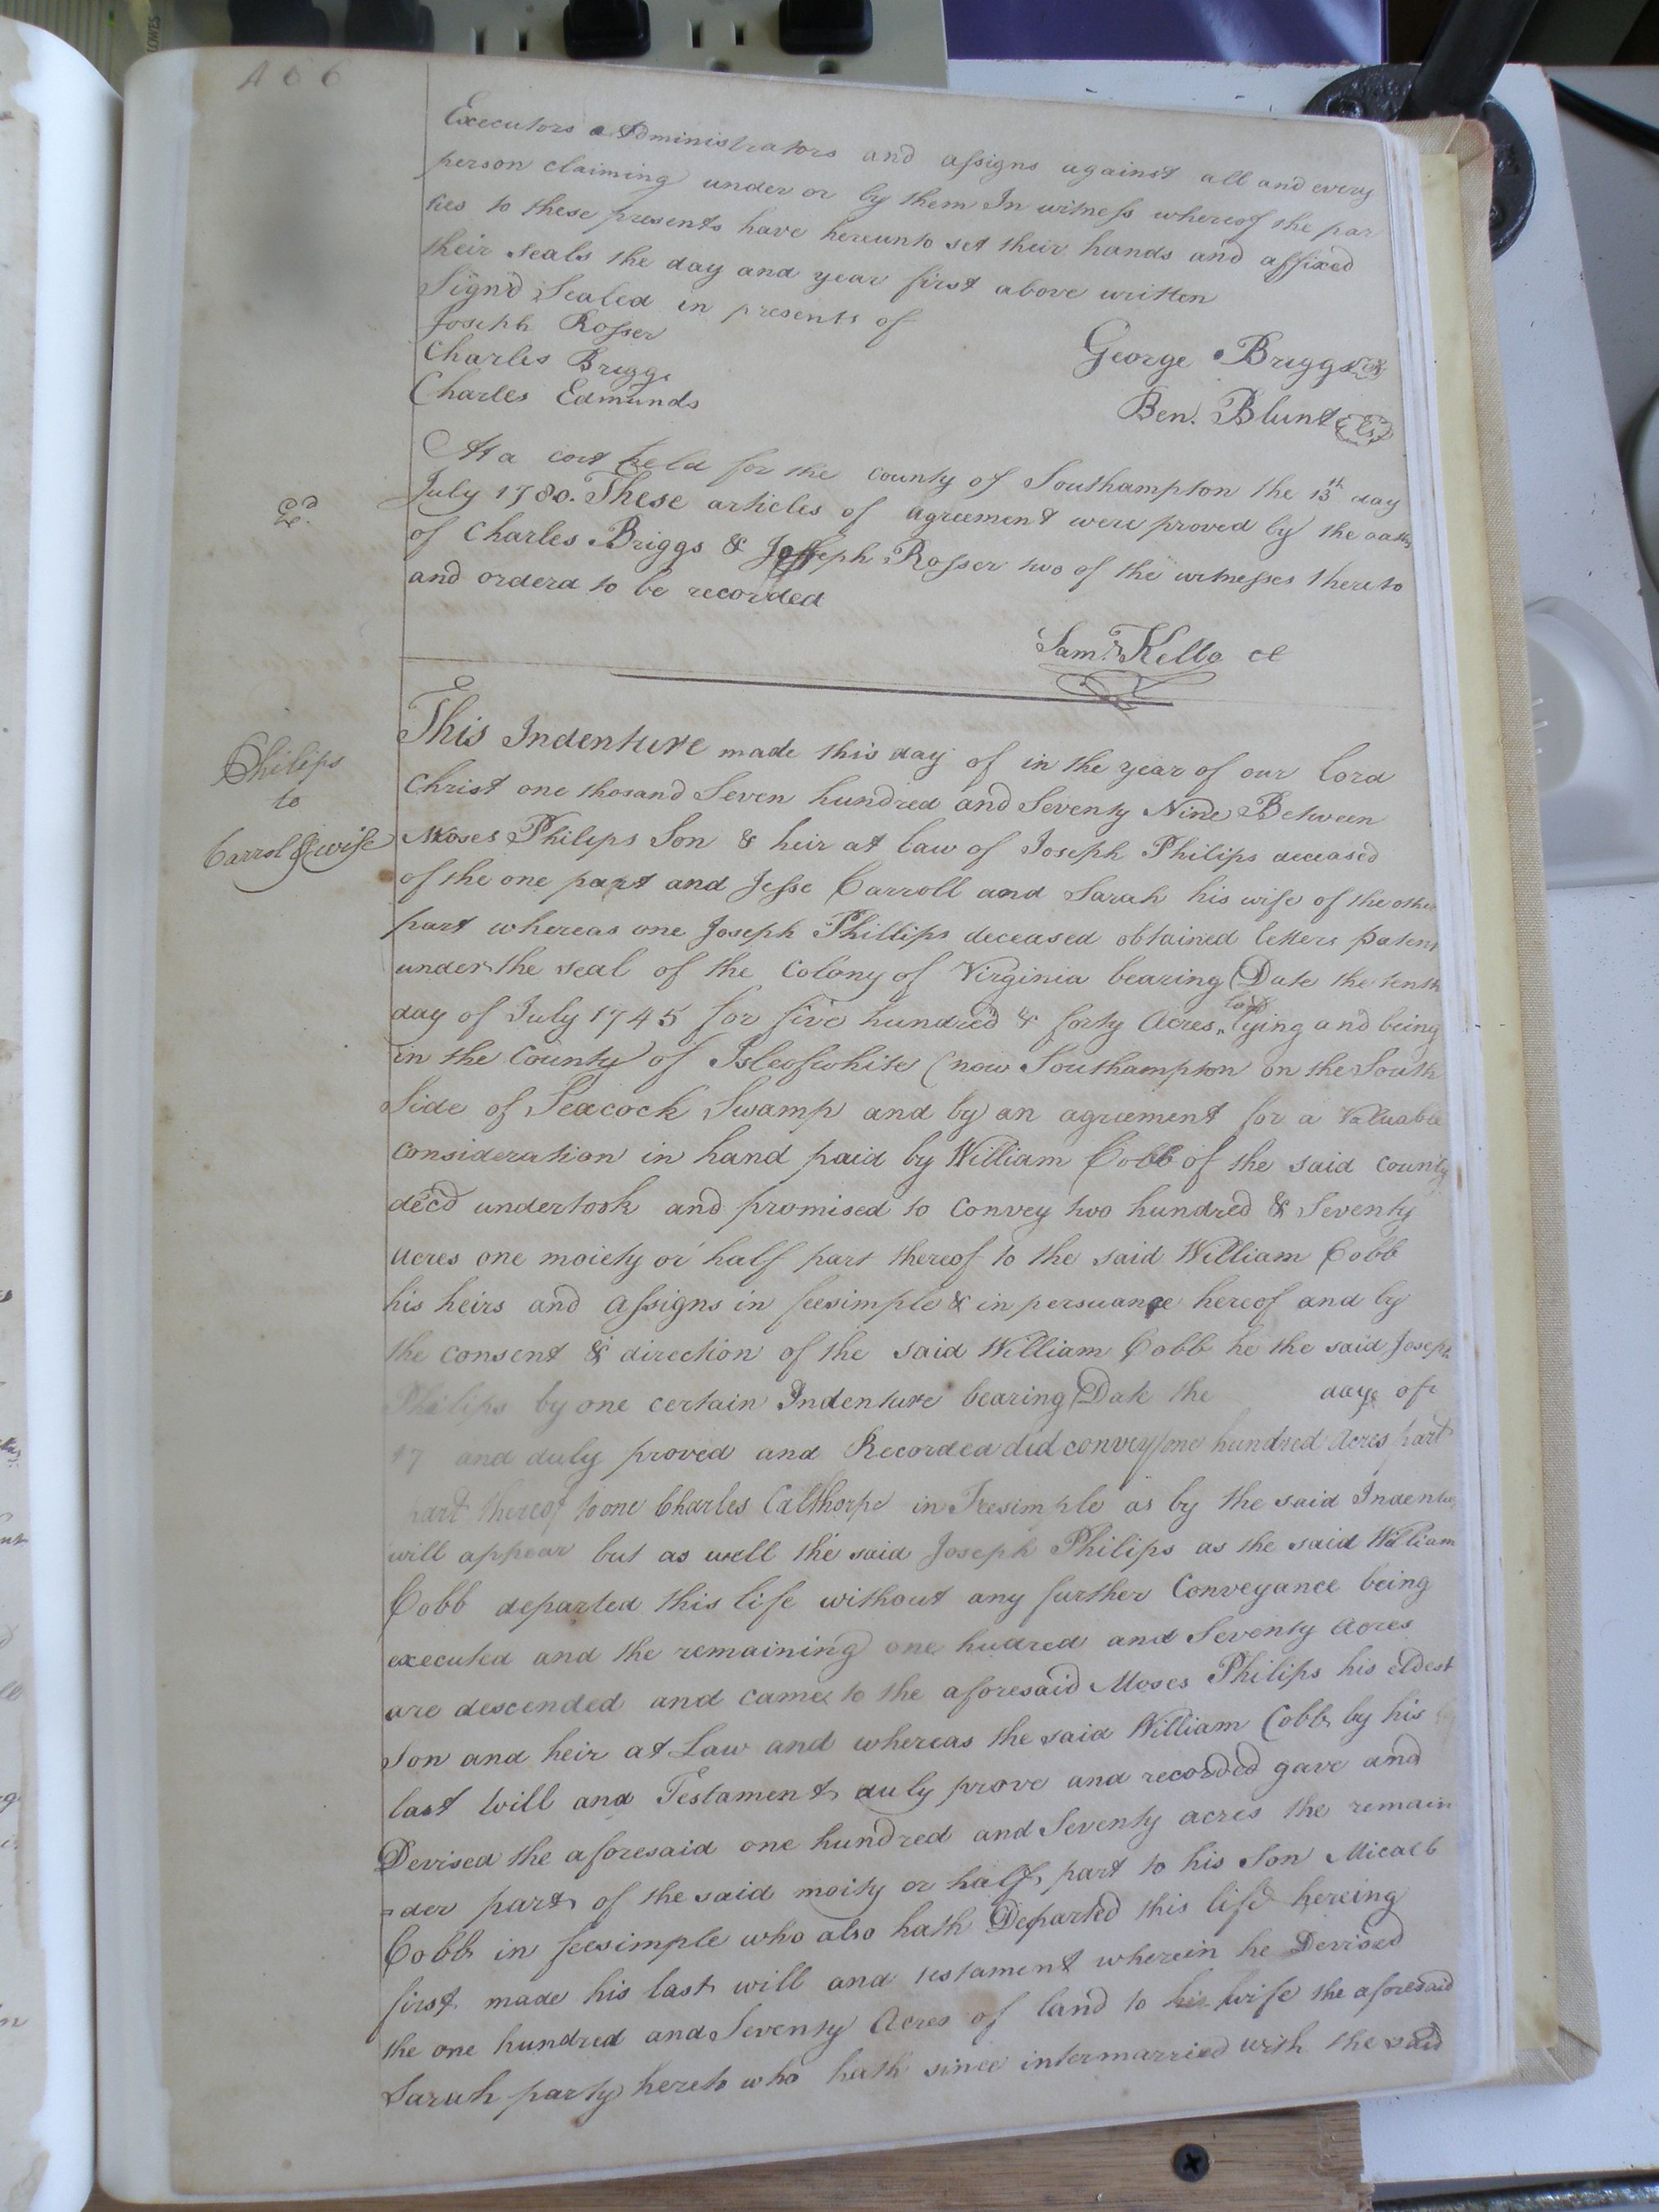 406
Executors Administrators and assigns against all and every
person claiming under or by them In witness whereof the par
ties to these presents have hereunto set their hands and affixed
their seals the day and year first above written
Sign'd Sealed in presents of
Joseph Rosser
George Briggs
Charles Briggs
Ben. Blunt
Charles Edmunds
At a cort held for the county of Southampton the 13th day
July 1780. These articles of agreement were proved by the oaths
of Charles Briggs & Joseph Rosser two of the witnesses thereto
and orderd to be recorded
Saml. Kello cl
Philips
to
Carrol & wife
This Indenture made this day of in the year of our lord
Christ one thosand Seven hundred and Seventy Nine Between
Moses Philips Son & heir at law of Joseph Philips deceased
of the one part and Jesse Carroll and Sarah his wife of the other
part whereas one Joseph Phillips deceased obtained letters patent
under the seal of the Colony of Virginia bearing Date the tenth
day of July 1745 for five hundred & forty Acres land lying and being
in the County of Isleofwhite (now Southampton on the South
Side of Seacock Swamp and by an agreement for a Valuable
consideration in hand paid by William Cobb of the said county
decd undertook and promised to Convey two hundred & Seventy
acres one moiety or half part thereof to the said William Cobb
his heirs and assigns in feesimple & in persuance hereof and by
the consent & direction of the said William Cobb he the said Joseph
Philips by one certain Indenture bearing Date the day of
17 and duly proved and Recorded did convey one hundred Acres part
part thereof to one Charles Calthorpe in Feesimple as by the said Indentu
will appear but as well the said Joseph Philips as the said William
Cobb departed this life without any further Conveyance being
executed and the remaining one hudred and Seventy acres
are descended and came to the aforesaid Moses Philips his eldest
Son and heir at Law and whereas the said William Cobb by his
last Will and Testament duly prove and recorded gave and
Devised the aforesaid one hundred and Seventy acres the remain
-der part of the said moity or half part to his Son Micaeb
Cobb in feesimple who also hath Departed this life hereing
first made his last will and testament wherein he Devised
the one hundred and Seventy Acres of land to his wife the aforesaid
Sarah party hereto who hath since intermarried with the said